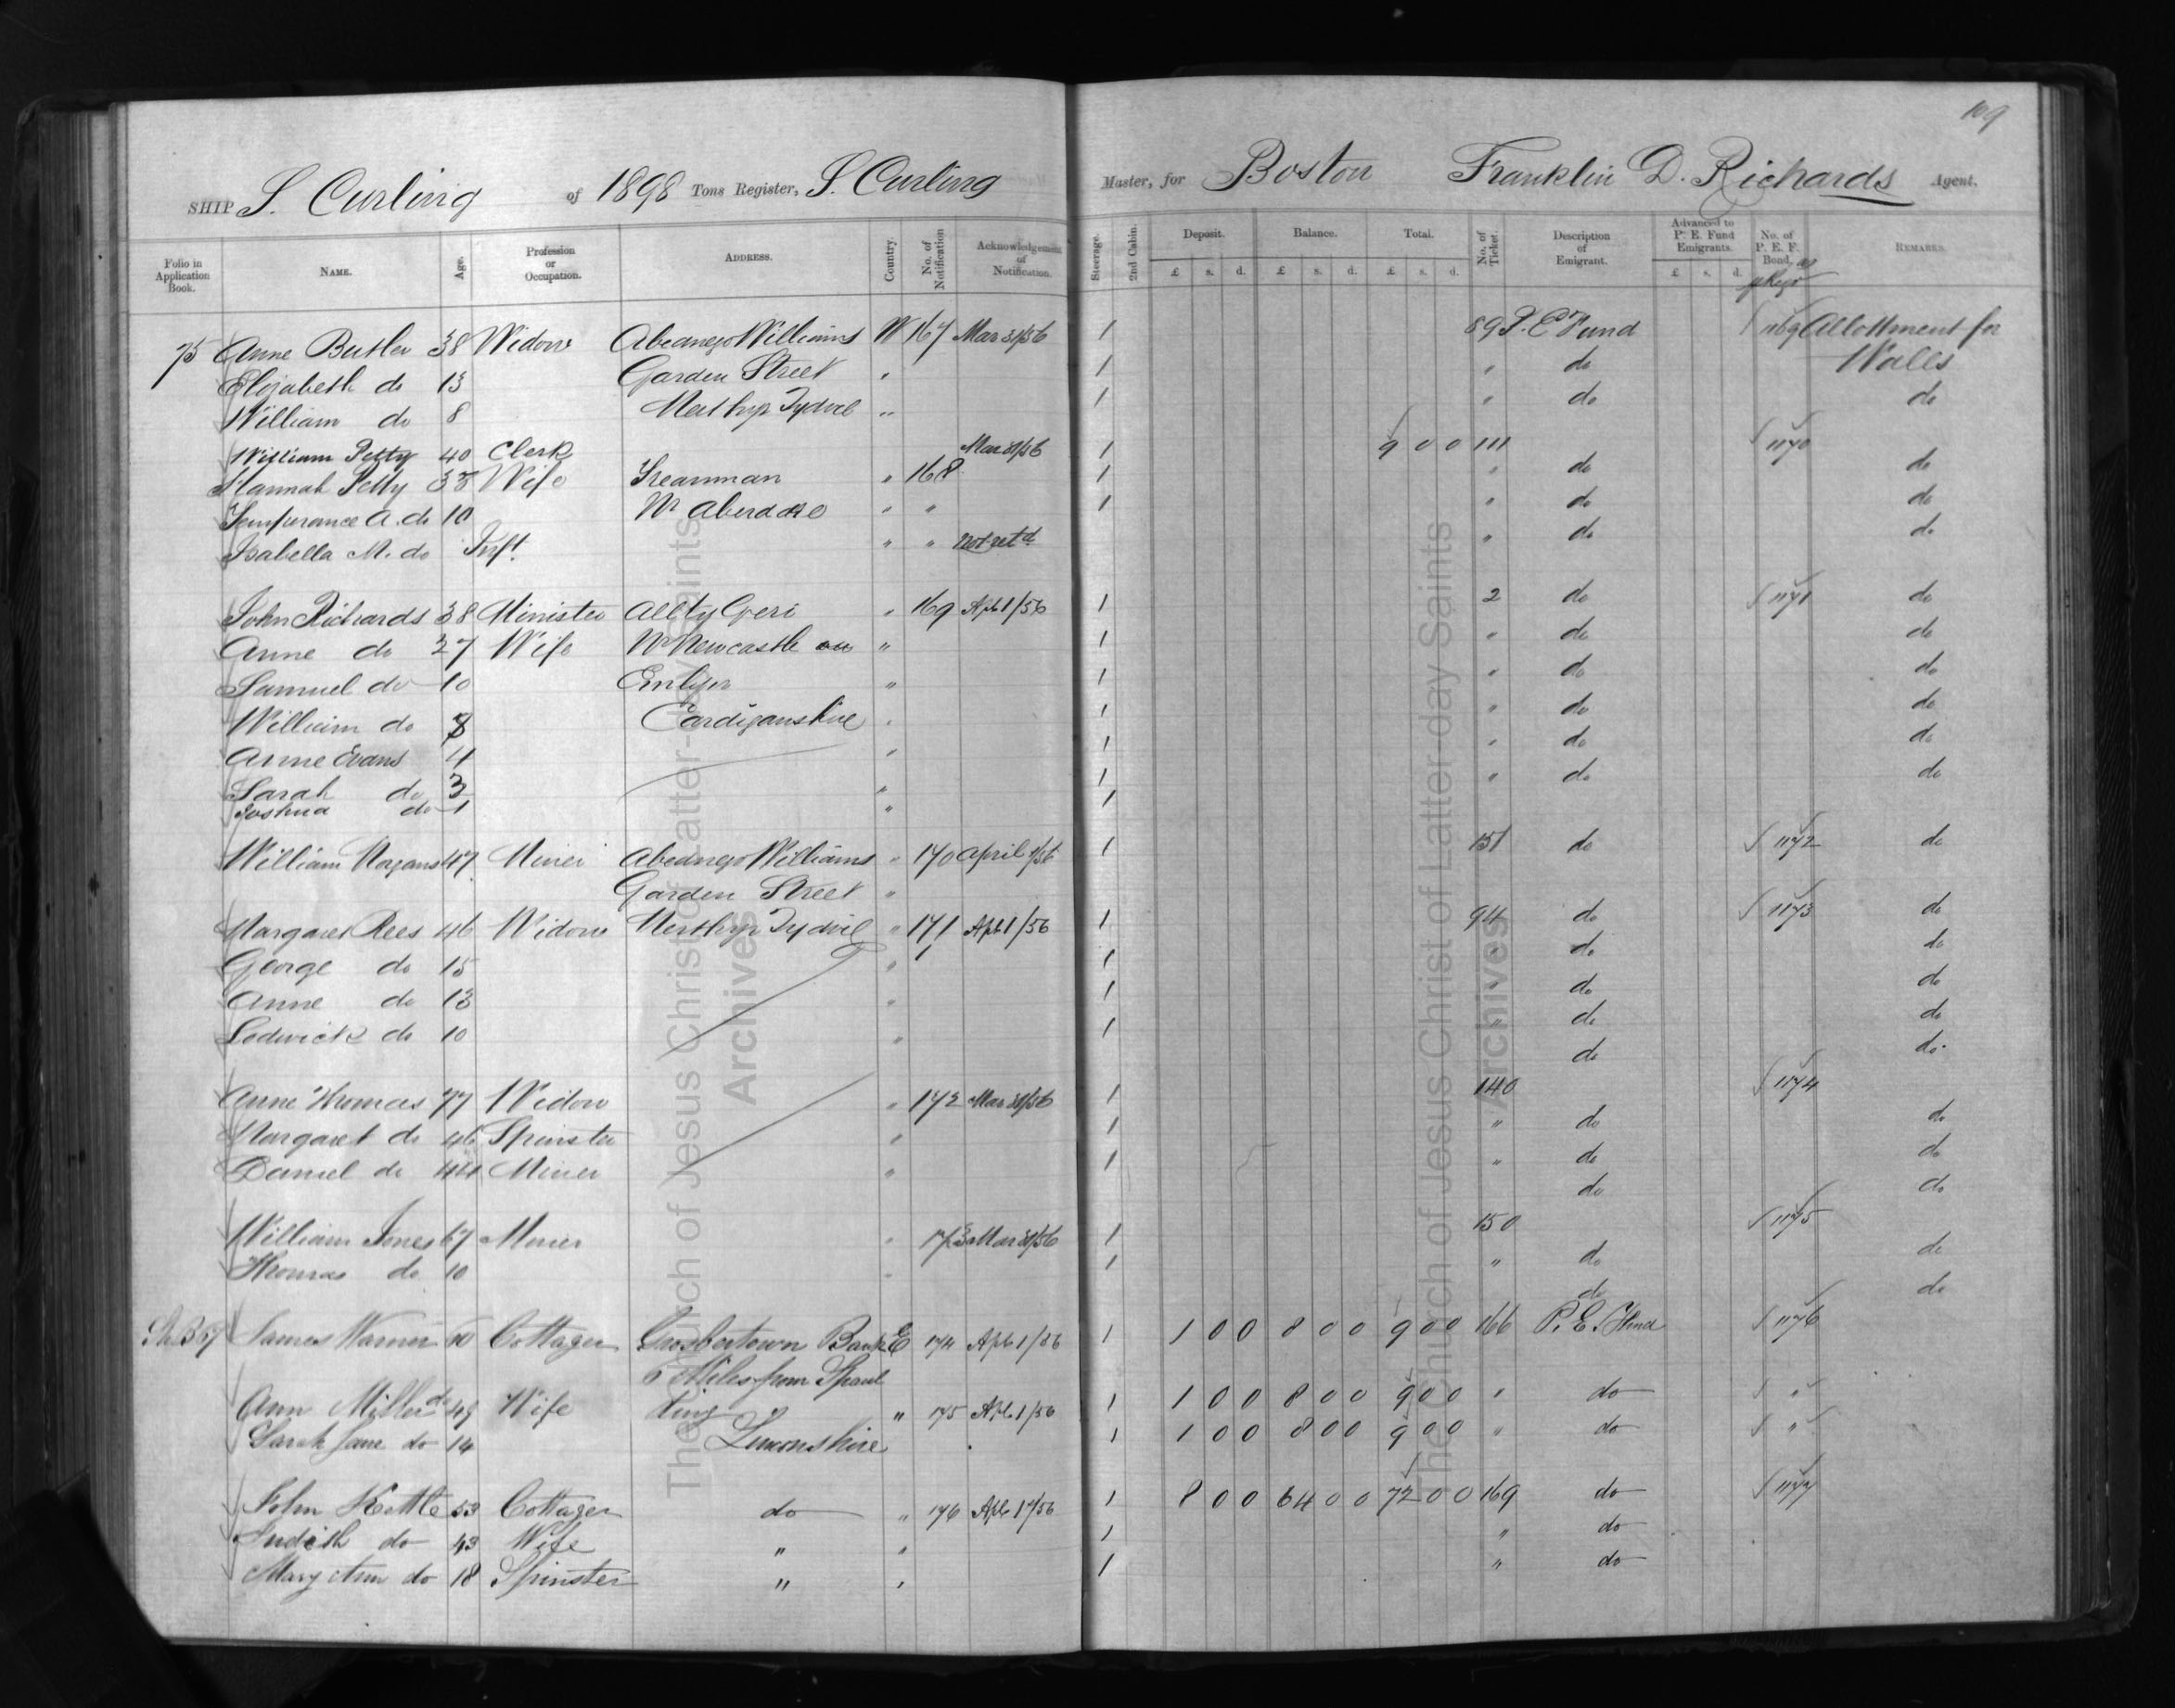 109
SHIP S. Curling of 1898 Tons Register, S. Curling Master, for Boston Franklin D. Richards Agent.
Folio in Application Book. NAME. Age. Profession or Occupation. ADDRESS. Country. No. of Notification Acknowledgement of Notification. Steerage. 2nd Cabin. Deposit. £ s. d. Balance. £ s. d. Total. £ s. d. No. of Ticket. Description of Emigrant. Advanced to P. E. Fund Emigrants. £ s. d. No. of P. E. F. Bond, REMARKS.
75 Anne Butler 38 Widow Abednego Williams W 167 Mar 31/56 1 89 P. E Fund 1169 Allottment for
Elizabeth do 13 Garden Street " 1 " do Wales
William do 8 Merthyr Tydvil " 1 " do do
William Petty 40 Clerk Mar 31/56 1 9 0 0 111 1170
Hannah Petty 33 Wife Treamman " 168 1 " do do
Temperance A. do 10 Nr Aberdare " " 1 " do do
Isabella M. do Inft. " " Not retd " do do
John Richards 38 Minister Allty " 169 Apl 1/56 1 2 do 1171 do
Anne do 37 Wife Nr Newcastle " 1 " do do
Samuel do 10 Emlyn " 1 " do do
William do 8 Cardiganshire " 1 " do do
Anne Evans 4 " 1 " do do
Sarah do 3 " 1 " do do
Joshua do 1 " 1
William Morgans 47 Miner Abednego Williams " 170 April 1/56 1 151 do 1172 do
Garden Street "
Margaret Rees 46 Widow Merthyr Tydvil " 171 Apl 1/56 1 94 do 1173 do
George do 15 " 1 " do do
Anne do 13 " 1 " do do
Lodwick do 10 " 1 " do do
do do.
Anne Thomas 77 Widow " 172 Mar 31/56 1 140 1174
Margaret do 46 Spinster " 1 " do do
Daniel do 44 Miner " 1 " do do
do do
William Jones 67 Miner " 173 Mar 31/56 1 150 1175
Thomas do 10 " 1 " do do
do do
James Warner 60 Cottager Bank E 174 Apl 1/56 1 1 0 0 8 0 0 9 0 0 166 P. E. Fund 1176
6 Miles from Spaul
Ann Miller do 49 Wife ding " 175 Apl 1/56 1 1 0 0 8 0 0 9 0 0 " do "
Sarah Jane do 14 Lincolnshire 1 1 0 0 8 0 0 9 0 0 " do "
John Kettle 53 Cottager do " 176 Apl 1/56 1 8 0 0 64 0 0 72 0 0 169 do 1177
Judith do 43 Wife " " 1 " do
Mary Ann do 18 Spinster " " 1 " do
The Church of Jesus Christ of Latter-day Saints
Archives
The Church of Jesus Christ of Latter-day Saints
Archives